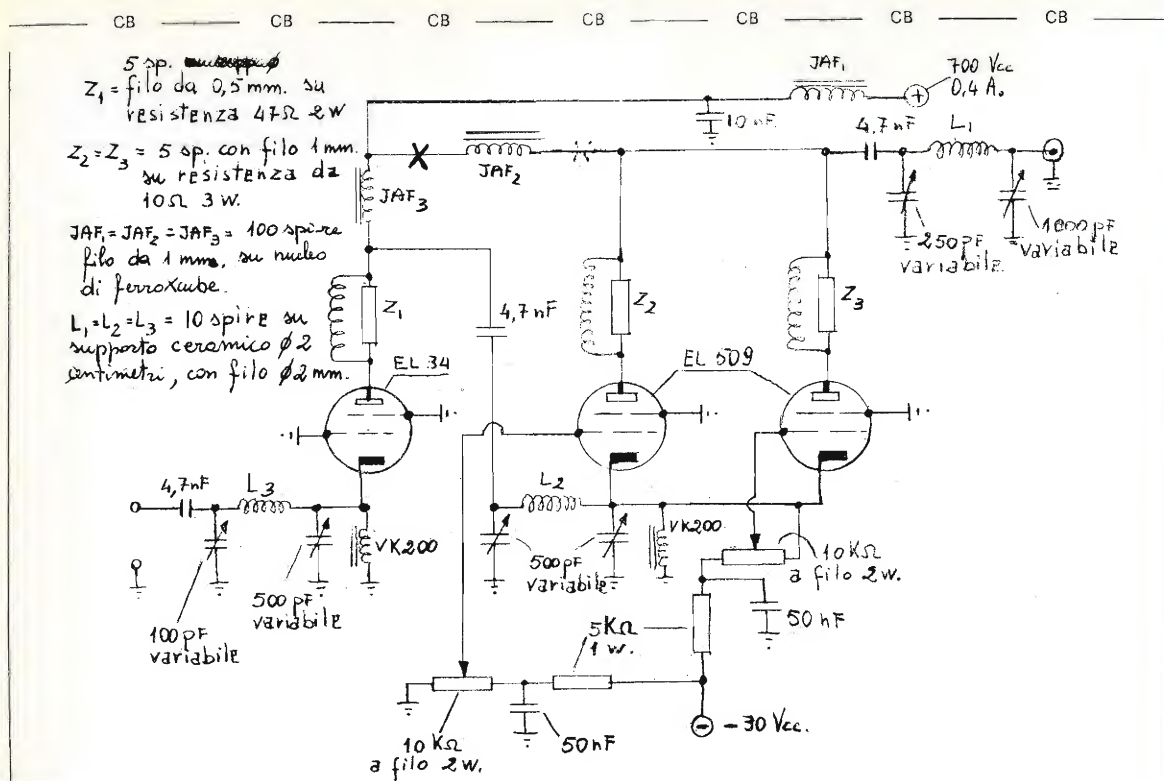 CB CB CB CB CB CB CB
5 sp.
Z1 = filo da 0,5 mm. su
resistenza 47Ω 2W
Z2 = Z3 = 5 sp. con filo 1 mm.
su resistenza da
10Ω 3W.
JAF1 = JAF2 = JAF3 = 100 spire
filo da 1 mm. su nucleo
di ferroxcube.
L1 = L2 = L3 = 10 spire su
supporto ceramico ø 2
centimetri, con filo ø 2 mm.
JAF1
700 Vcc
0,4 A.
10 nF
4,7 nF
L1
JAF2
JAF3
250 pF
variabile
1000 pF
variabile
Z1
4,7 nF
Z2
Z3
EL 34
EL 509
4,7 nF
L3
L2
VK200
VK200
500 pF
variabile
10 KΩ
a filo 2 w.
100 pF
variabile
500 pF
variabile
5 KΩ
1 w.
50 nF
10 KΩ
a filo 2 w.
50 nF
- 30 Vcc.